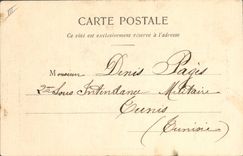 CARTE POSTALE
Ce côté est exclusivement réservé à l'adresse
Monsieur Denis Pagès
2me Sous Intendance Militaire
Tunis
(Tunisie)